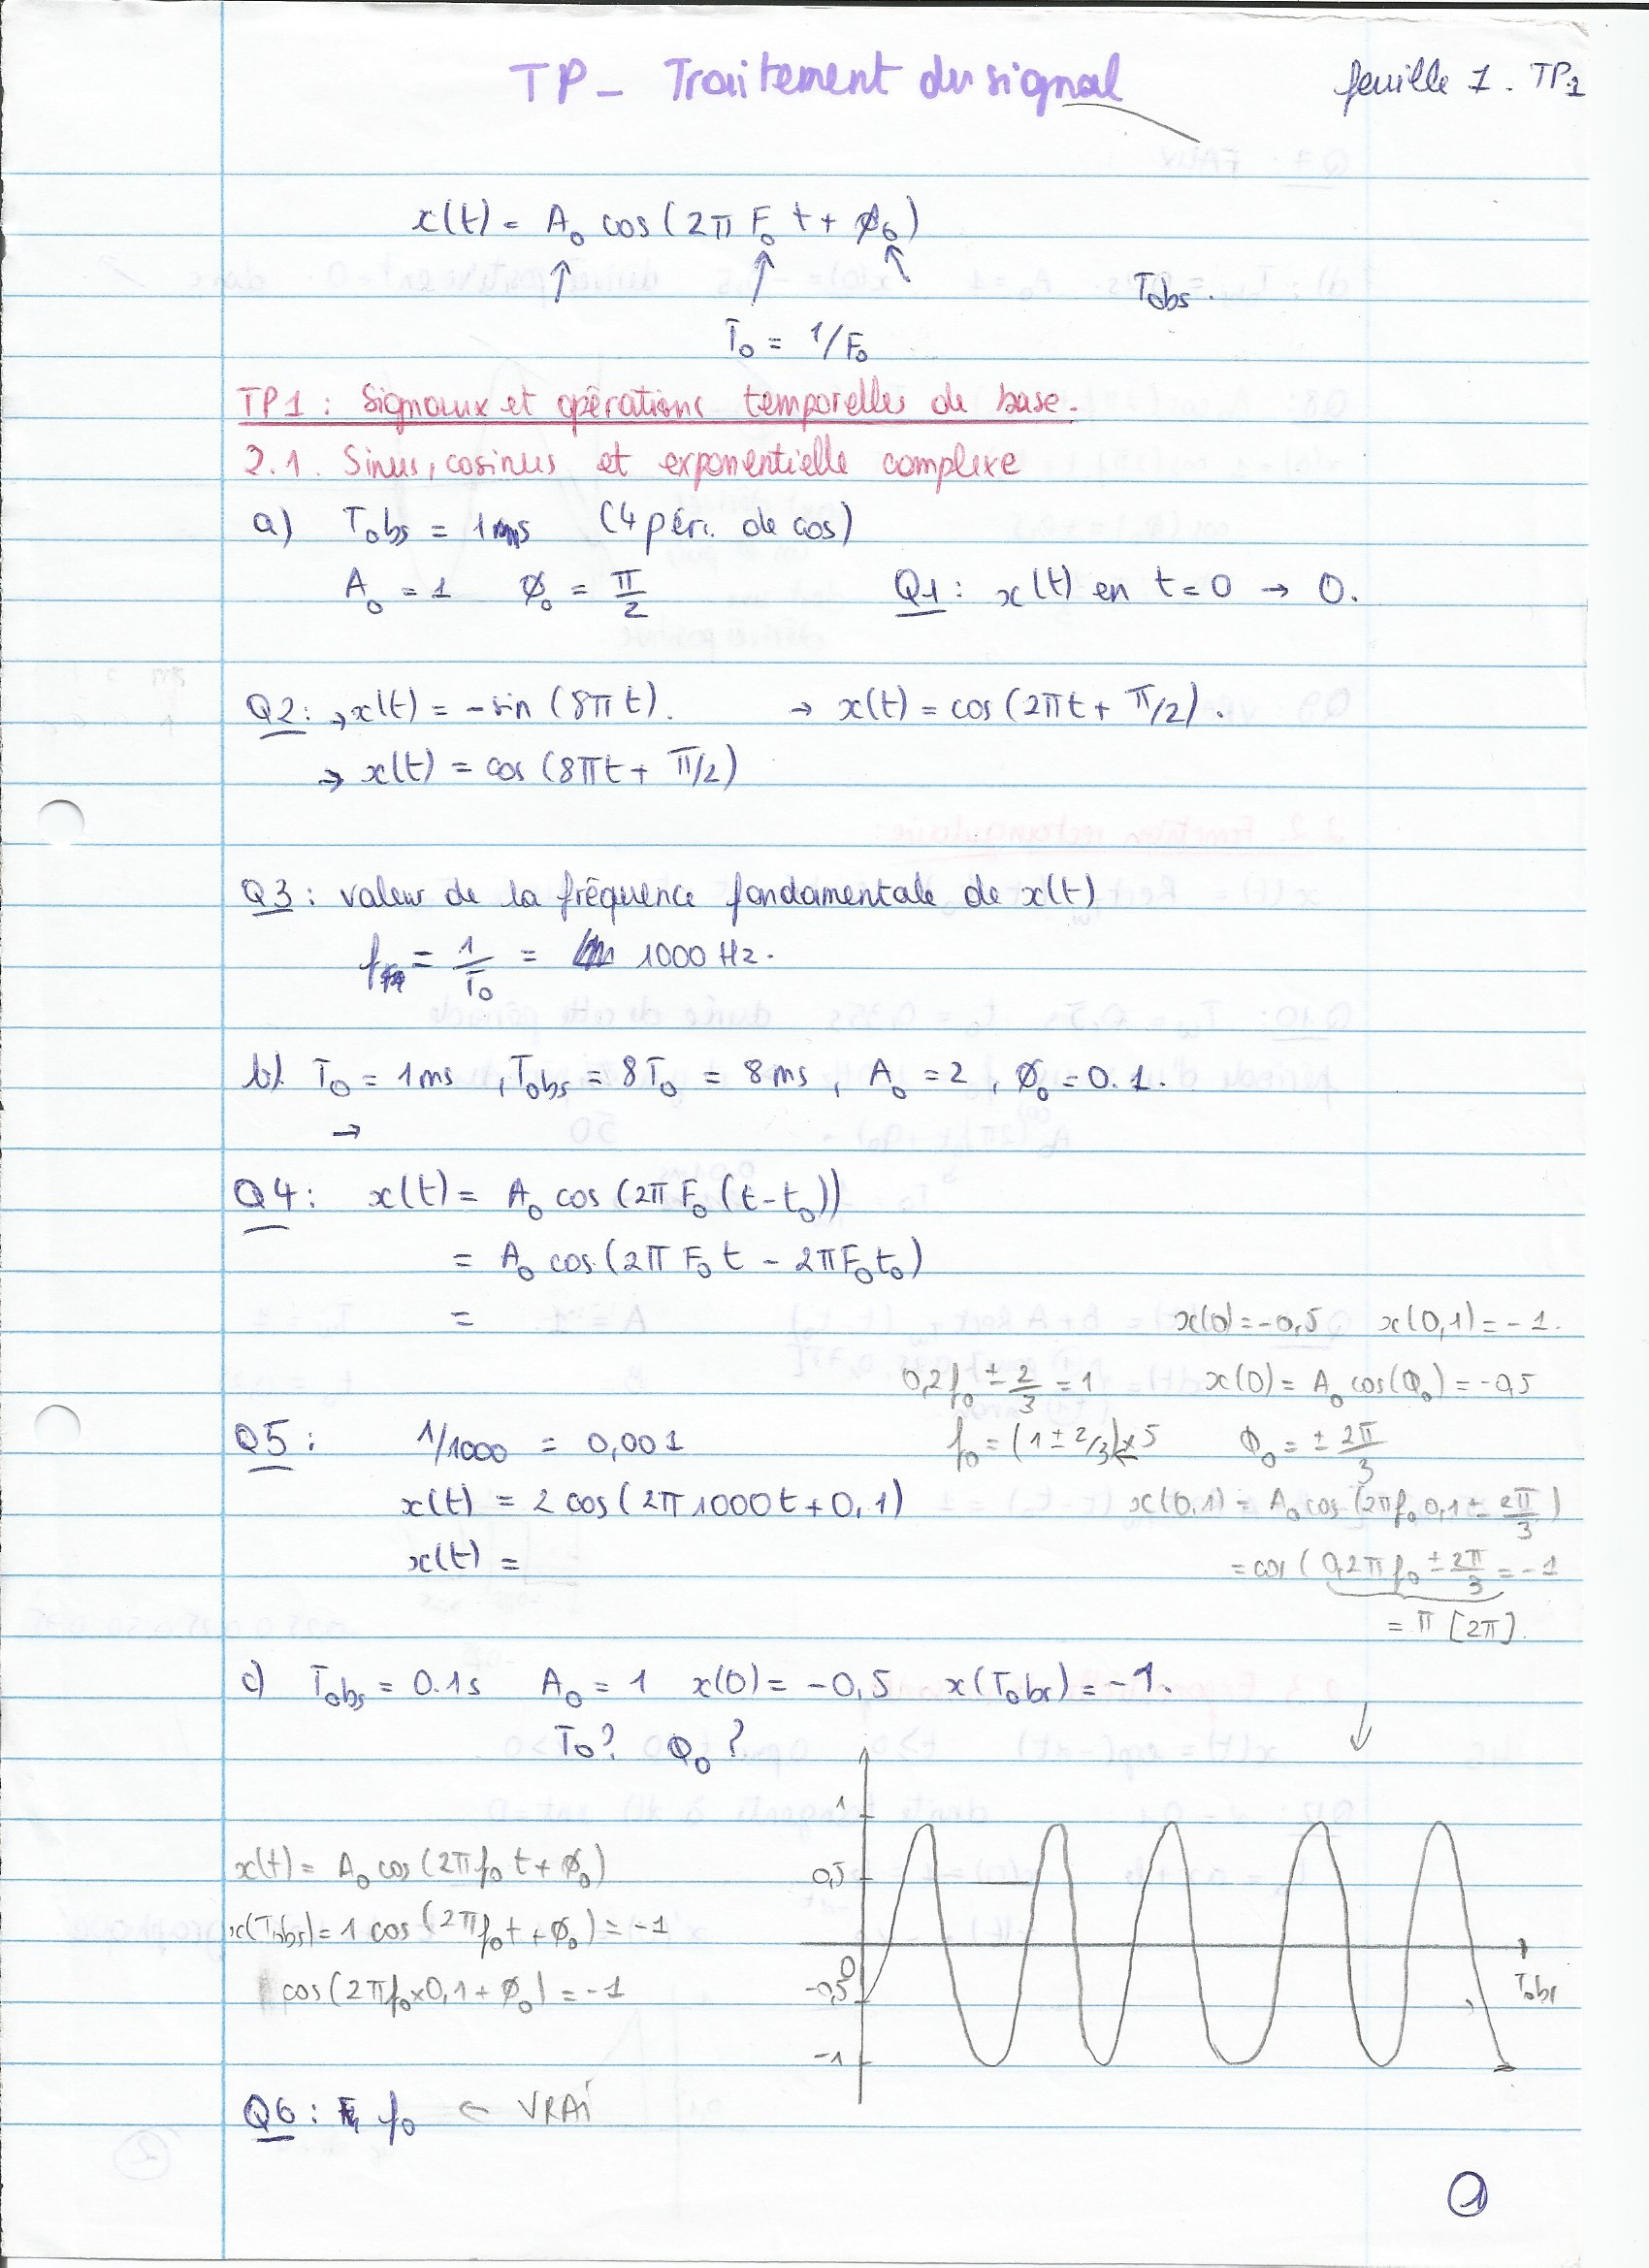 TP - Traitement du signal
feuille 1. TP1
x(t) = A₀ cos(2π F₀ t + φ₀)
Tobs.
T₀ = 1/F₀
TP1 : Signaux et opérations temporelles de base.
2.1. Sinus, cosinus et exponentielle complexe
a) Tobs = 1ms (4 péri. de cos)
A₀ = 1 φ₀ = π/2 Q1 : x(t) en t = 0 → 0.
Q2 : → x(t) = -sin (8πt). → x(t) = cos (2πt + π/2).
→ x(t) = cos (8πt + π/2)
Q3 : valeur de la fréquence fondamentale de x(t)
f = 1/T₀ = 1000 Hz.
b) T₀ = 1ms, Tobs = 8T₀ = 8ms, A₀ = 2, φ₀ = 0.1.
→
Q4 : x(t) = A₀ cos (2π F₀ (t - t₀))
= A₀ cos (2π F₀ t - 2πF₀t₀)
=
x(0) = -0,5 x(0,1) = -1.
0,2f₀ ± 2/3 = 1 x(0) = A₀ cos(φ₀) = -0,5
Q5 : 1/1000 = 0,001 f₀ = (1 ± 2/3) × 5 φ₀ = ± 2π/3
x(t) = 2 cos (2π1000t + 0,1) x(0,1) = A₀ cos (2πf₀ 0,1 ± 2π/3)
x(t) = = cos (0,2πf₀ ± 2π/3 = -1
= π [2π].
c) Tobs = 0.1s A₀ = 1 x(0) = -0,5 x(Tobs) = -1.
T₀? φ₀?
1
x(t) = A₀ cos (2πf₀ t + φ₀) 0,5
x(Tobs) = 1 cos (2πf₀t + φ₀) = -1
0
cos (2πf₀×0,1 + φ₀) = -1 -0,5 Tobs
-1
Q6 : f₀ ← VRAI
1